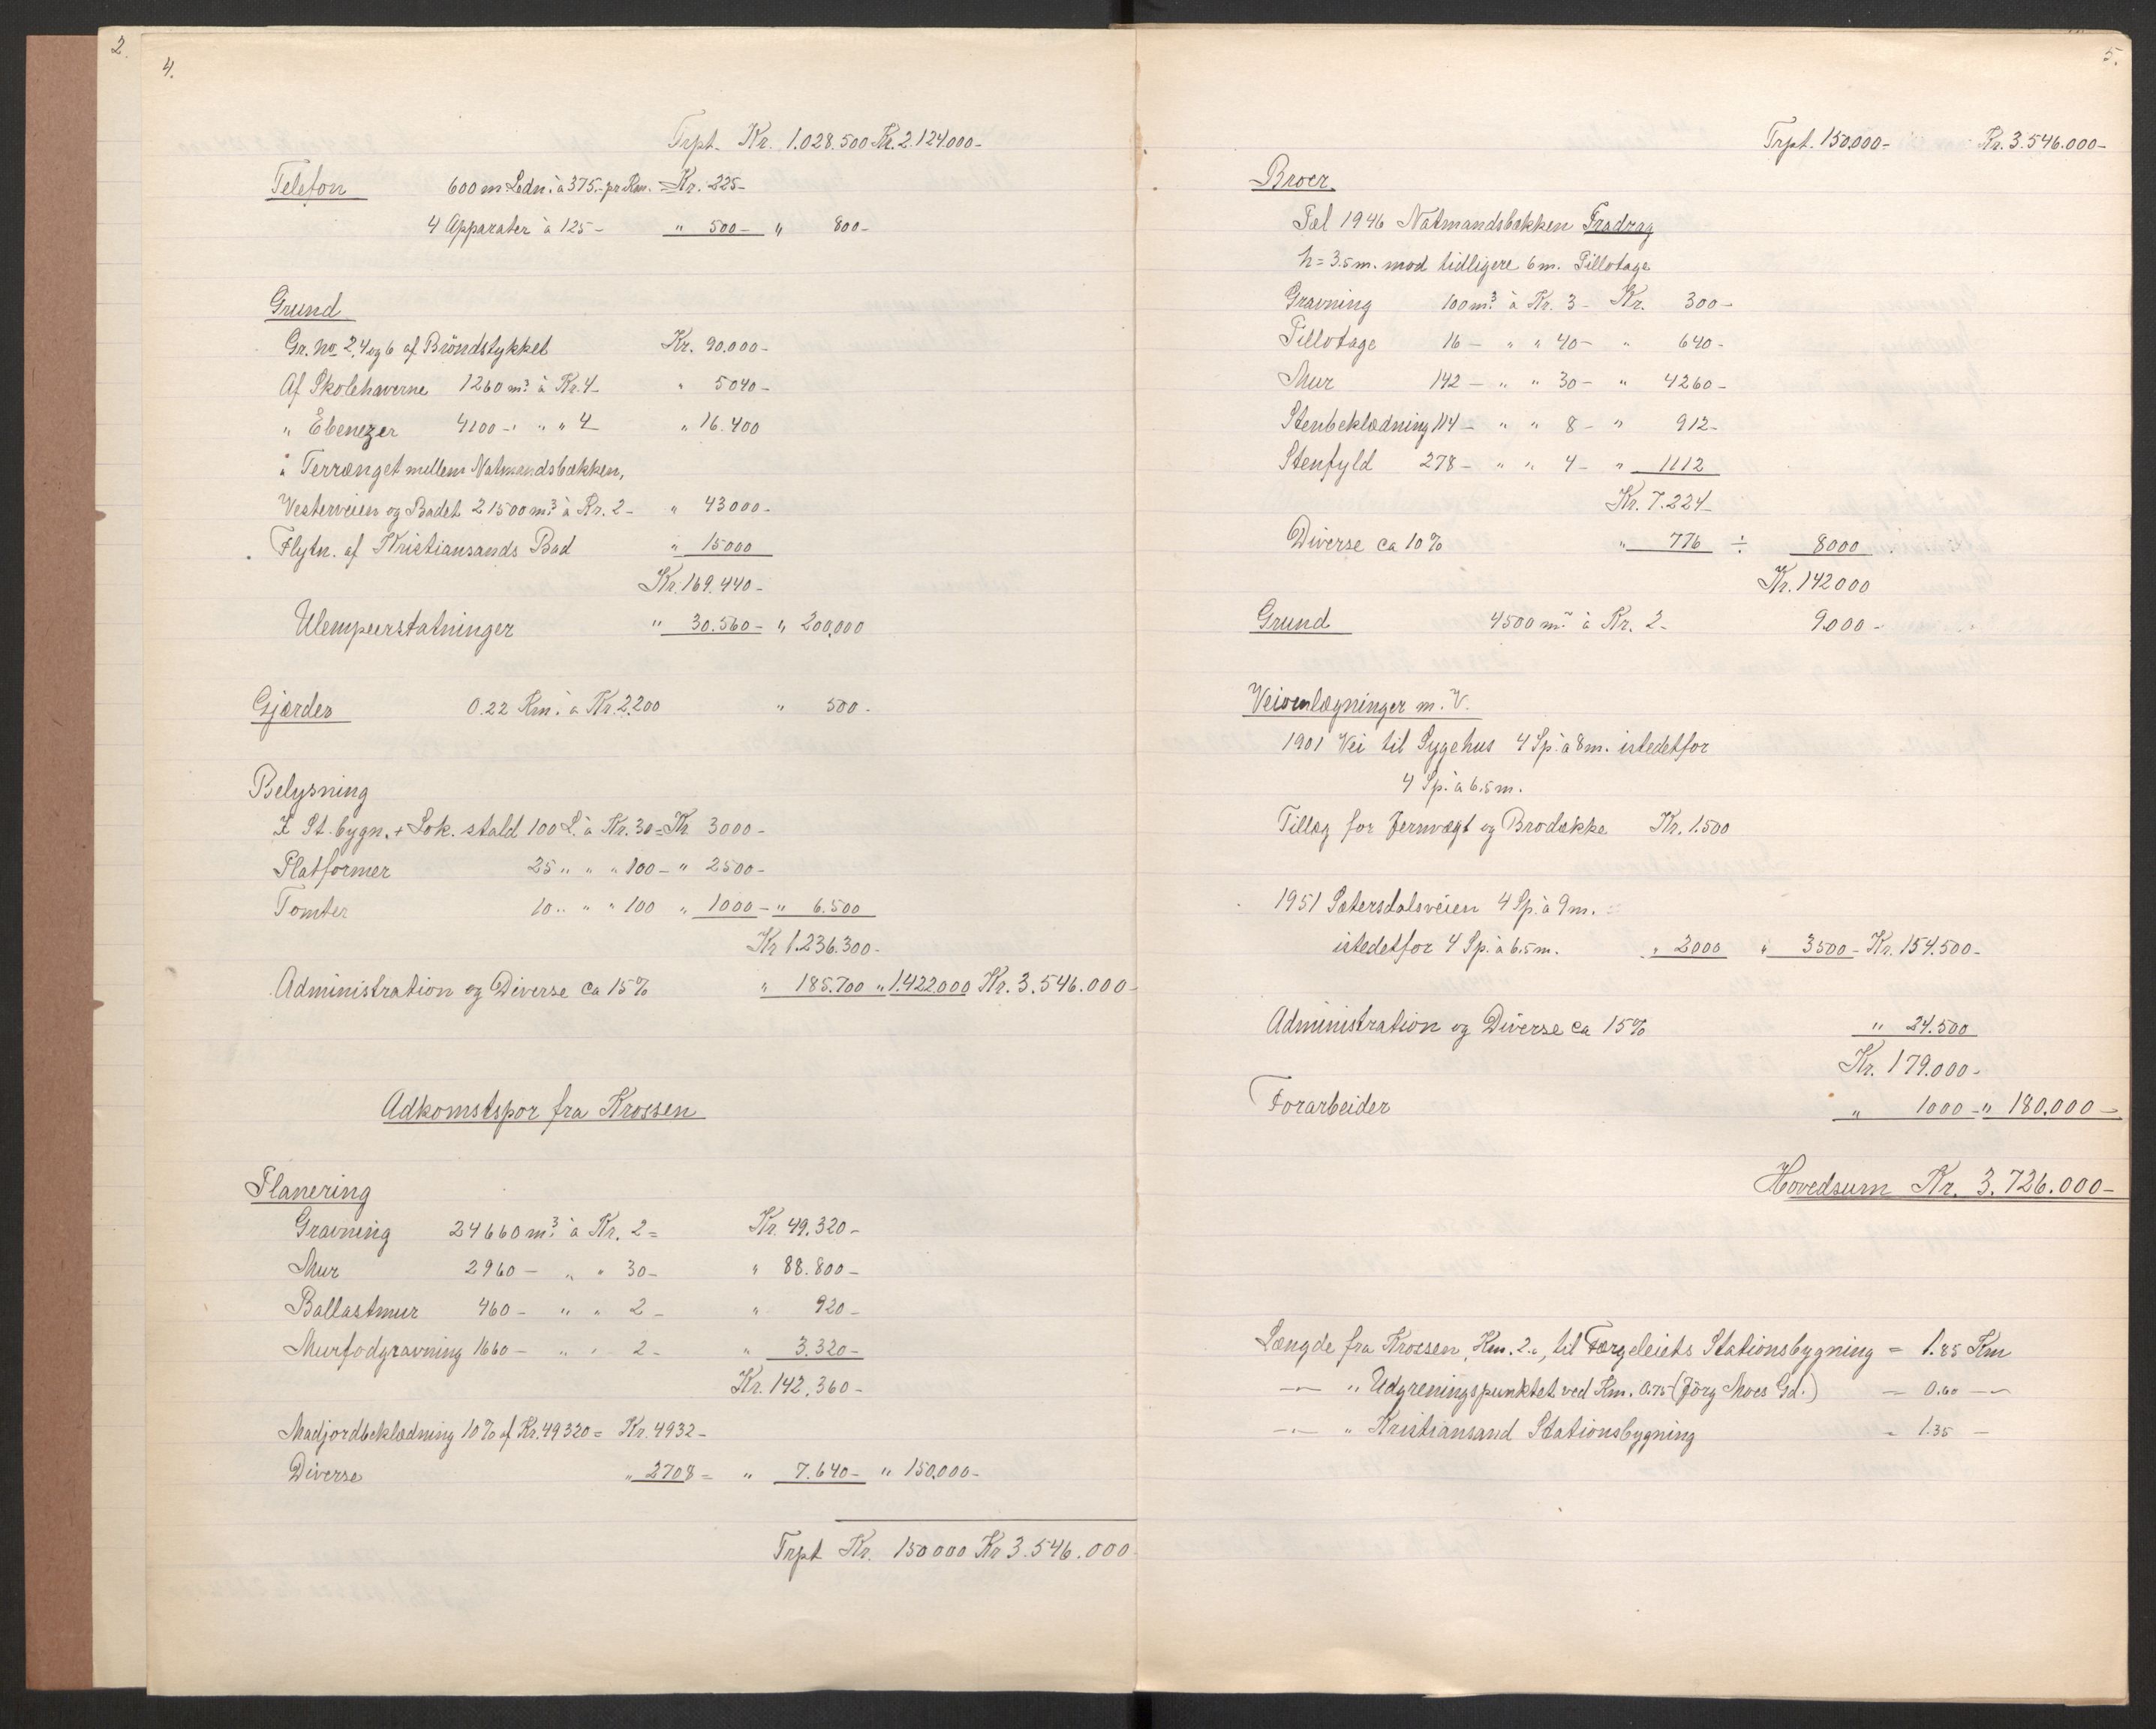 2.
4.
Trpt. Kr. 1.028.500 Kr. 2.124.000-
Telefon 600 m Ledn. à 375.- pr Km. = Kr. 225-
4 Apparater à 125- " 500- " 800-
Grund
Gr. No 2,4 og 6 af Bröndstykket Kr. 90.000-
Af Skolehaverne 1260 m² à Kr. 4- " 5040-
" Ebenezer 4100 - " " 4- " 16.400
" Terrænget mellem Natmandsbækken,
Vesterveien og Badet 21500 m² à Kr. 2- " 43000-
Flytn. af Kristiansands Bad " 15000
Kr. 169.440-
Ulempeerstatninger " 30.560- " 200,000
Gjærder 0.22 Km. à Kr. 2.200 " 500-
Belysning
I St. bygn. + Lok. stald 100 L. à Kr. 30 = Kr 3000-
Platformer 25 " " " 100- " 2500-
Tomter 10 " " " 100 " 1000- " 6.500
Kr 1.236.300-
Administration og Diverse ca 15% " 185.700 " 1.422.000 Kr. 3.546.000-
Adkomstspor fra Krossen
Planering
Gravning 24660 m³ à Kr. 2 = Kr. 49.320-
Mur 2960 - " " 30- " 88.800-
Ballastmur 460 - " " 2- " 920-
Murfodgravning 1660 - " " 2- " 3.320-
Kr. 142.360-
Madjordbeklædning 10% af Kr. 49320 = Kr. 4932-
Diverse " 2708 = " 7.640- " 150.000-
Trpt Kr. 150000 Kr 3.546.000
5.
Trpt. 150.000- Kr. 3.546.000-
Broer.
Pæl 1946 Natmandsbækken Fradrag
h = 3.5 m. mod tidligere 6 m. Pillotage
Gravning 100 m³ à Kr. 3- Kr. 300-
Pillotage 16 - " " 40- " 640-
Mur 142 - " " 30- " 4260-
Stenbeklædning 114 - " " 8- " 912-
Stenfyld 278 - " " 4- " 1112
Kr. 7.224-
Diverse ca 10% " 776 ÷ 8000
Kr. 142000
Grund 4500 m² à Kr. 2- 9.000-
Veiomlægninger m. V.
1901 Vei til Sygehus 4 Sp. à 8 m. istedetfor
4 Sp. à 6.5 m.
Tillæg for Jernvægt og Brodække Kr. 1.500
1951 Sætersdalsveien 4 Sp. à 9 m.
istedetfor 4 Sp. à 6.5 m. " 2000 " 3500- Kr. 154.500-
Administration og Diverse ca 15% " 24.500
Kr. 179.000-
Forarbeider " 1000- " 180.000-
Hovedsum Kr. 3.726.000-
Længde fra Krossen, Km. 2., til Færgeleiets Stationsbygning = 1.85 Km
-"- " Udgreningspunktet ved Km. 0.75 (Jörg Moes Gd.) = 0.60 -"-
-"- " Kristiansand Stationsbygning = 1.35 -